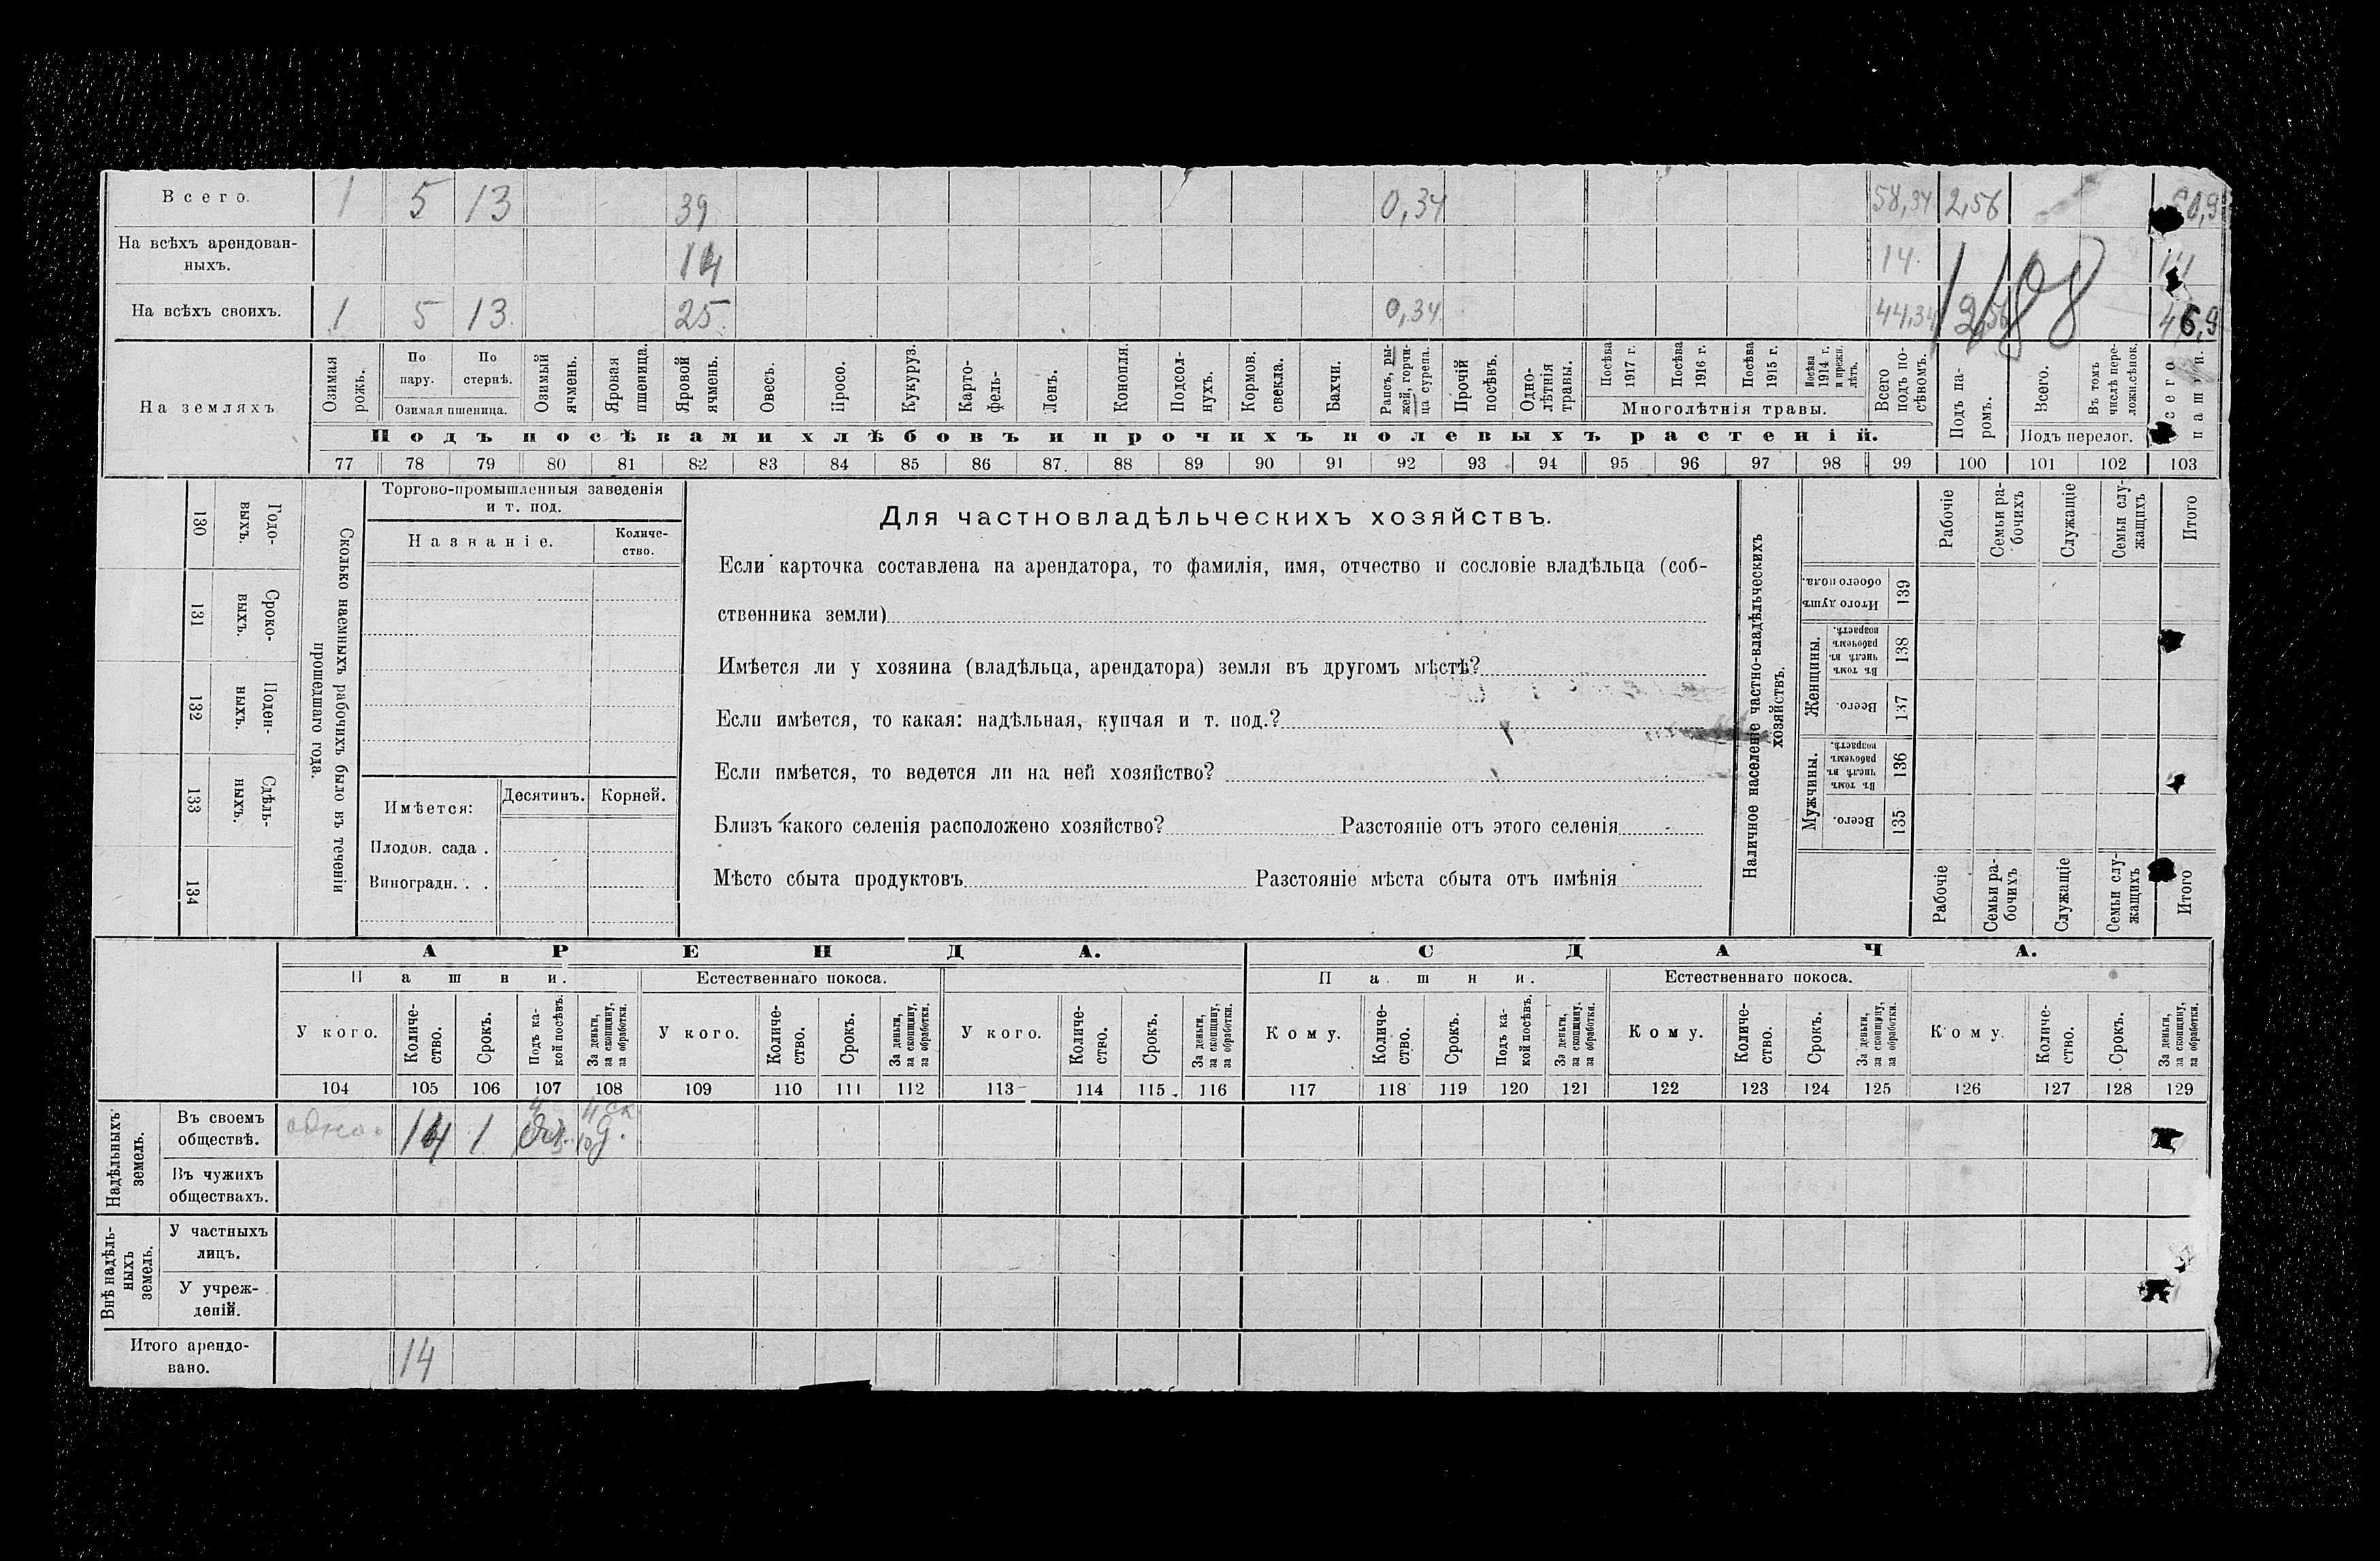 Всего. 1 5 13 39 0,34 58,34 2,56
На всѣхъ арендован-
ныхъ. 14 14
На всѣхъ своихъ. 1 5 13 25 0,34 44,34 2,56 46,9
На земляхъ
Озимая рожь.
По пару.
По стернѣ.
Озимая пшеница.
Озимый ячмень.
Яровая пшеница.
Яровой ячмень.
Овесъ.
Просо.
Кукуруз.
Карто-
фель-
Ленъ.
Конопля.
Подсол-
нухъ.
Кормов.
свекла.
Бахчи.
Рапсъ, ры-
жей, горчи-
ца сурепа.
Прочій
посѣвъ.
Одно-
лѣтнія
травы.
Посѣва
1917 г.
Посѣва
1916 г.
Посѣва
1915 г.
Посѣва
1914 г.
и прежн.
лѣтъ.
Многолѣтнія травы.
Всего
подъ по-
сѣвомъ.
Подъ па-
ромъ.
Всего.
Въ томъ
числѣ пере-
ложн.сѣнок.
Подъ перелог.
Всего
пашни.
Подъ посѣвами хлѣбовъ и прочихъ полевыхъ растеній.
77 78 79 80 81 82 83 84 85 86 87. 88 89 90 91 92 93 94 95 96 97 98 99 100 101 102 103
1108
130 Годо-
выхъ.
131 Сроко-
выхъ.
132 Поден-
ныхъ.
133 Сдѣль-
ныхъ.
134
Сколько наемныхъ рабочихъ было въ теченіи
прошедшаго года.
Торгово-промышленныя заведенія
и т. под.
Названіе.
Количе-
ство.
Имѣется:
Десятинъ.
Корней.
Плодов. сада .
Виноградн. . .
Для частновладѣльческихъ хозяйствъ.
Если карточка составлена на арендатора, то фамилія, имя, отчество и сословіе владѣльца (соб-
ственника земли)
Имѣется ли у хозяина (владѣльца, арендатора) земля въ другомъ мѣстѣ?
Если имѣется, то какая: надѣльная, купчая и т. под.?
Если имѣется, то ведется ли на ней хозяйство?
Близъ какого селенія расположено хозяйство? Разстояніе отъ этого селенія
Мѣсто сбыта продуктовъ Разстояніе мѣста сбыта отъ имѣнія
Наличное населеніе частно-владѣльческихъ
хозяйствъ.
Рабочіе
Семьи ра-
бочихъ
Служащіе
Семьи слу-
жащихъ
Итого
Итого душъ
обоего пола.
139
Женщины.
Въ томъ
числѣ въ
рабочемъ
возрастѣ.
138
Всего.
137
Мужчины.
Въ томъ
числѣ въ
рабочемъ
возрастѣ.
136
Всего.
135
Рабочіе
Семьи ра-
бочихъ
Служащіе
Семьи слу-
жащихъ
Итого
АРЕНДА. СДАЧА.
Пашни. Естественнаго покоса. Пашни. Естественнаго покоса.
У кого.
Количе-
ство.
Срокъ.
Подъ ка-
кой посѣвъ.
За деньги,
за скопщину,
за обработки.
У кого.
Количе-
ство.
Срокъ.
За деньги,
за скопщину,
за обработки.
У кого.
Количе-
ство.
Срокъ.
За деньги,
за скопщину,
за обработки.
Кому.
Количе-
ство.
Срокъ.
Подъ ка-
кой посѣвъ.
За деньги,
за скопщину,
за обработки.
Кому.
Количе-
ство.
Срокъ.
За деньги,
за скопщину,
за обработки.
Кому.
Количе-
ство.
Срокъ.
За деньги,
за скопщину,
за обработки.
104 105 106 107 108 109 110 111 112 113 114 115 116 117 118 119 120 121 122 123 124 125 126 127 128 129
Надѣльныхъ
земель.
Въ своемъ
обществѣ. 14 1
Въ чужихъ
обществахъ.
Внѣ надѣль-
ныхъ
земель.
У частныхъ
лицъ.
У учреж-
деній.
Итого арендо-
вано. 14